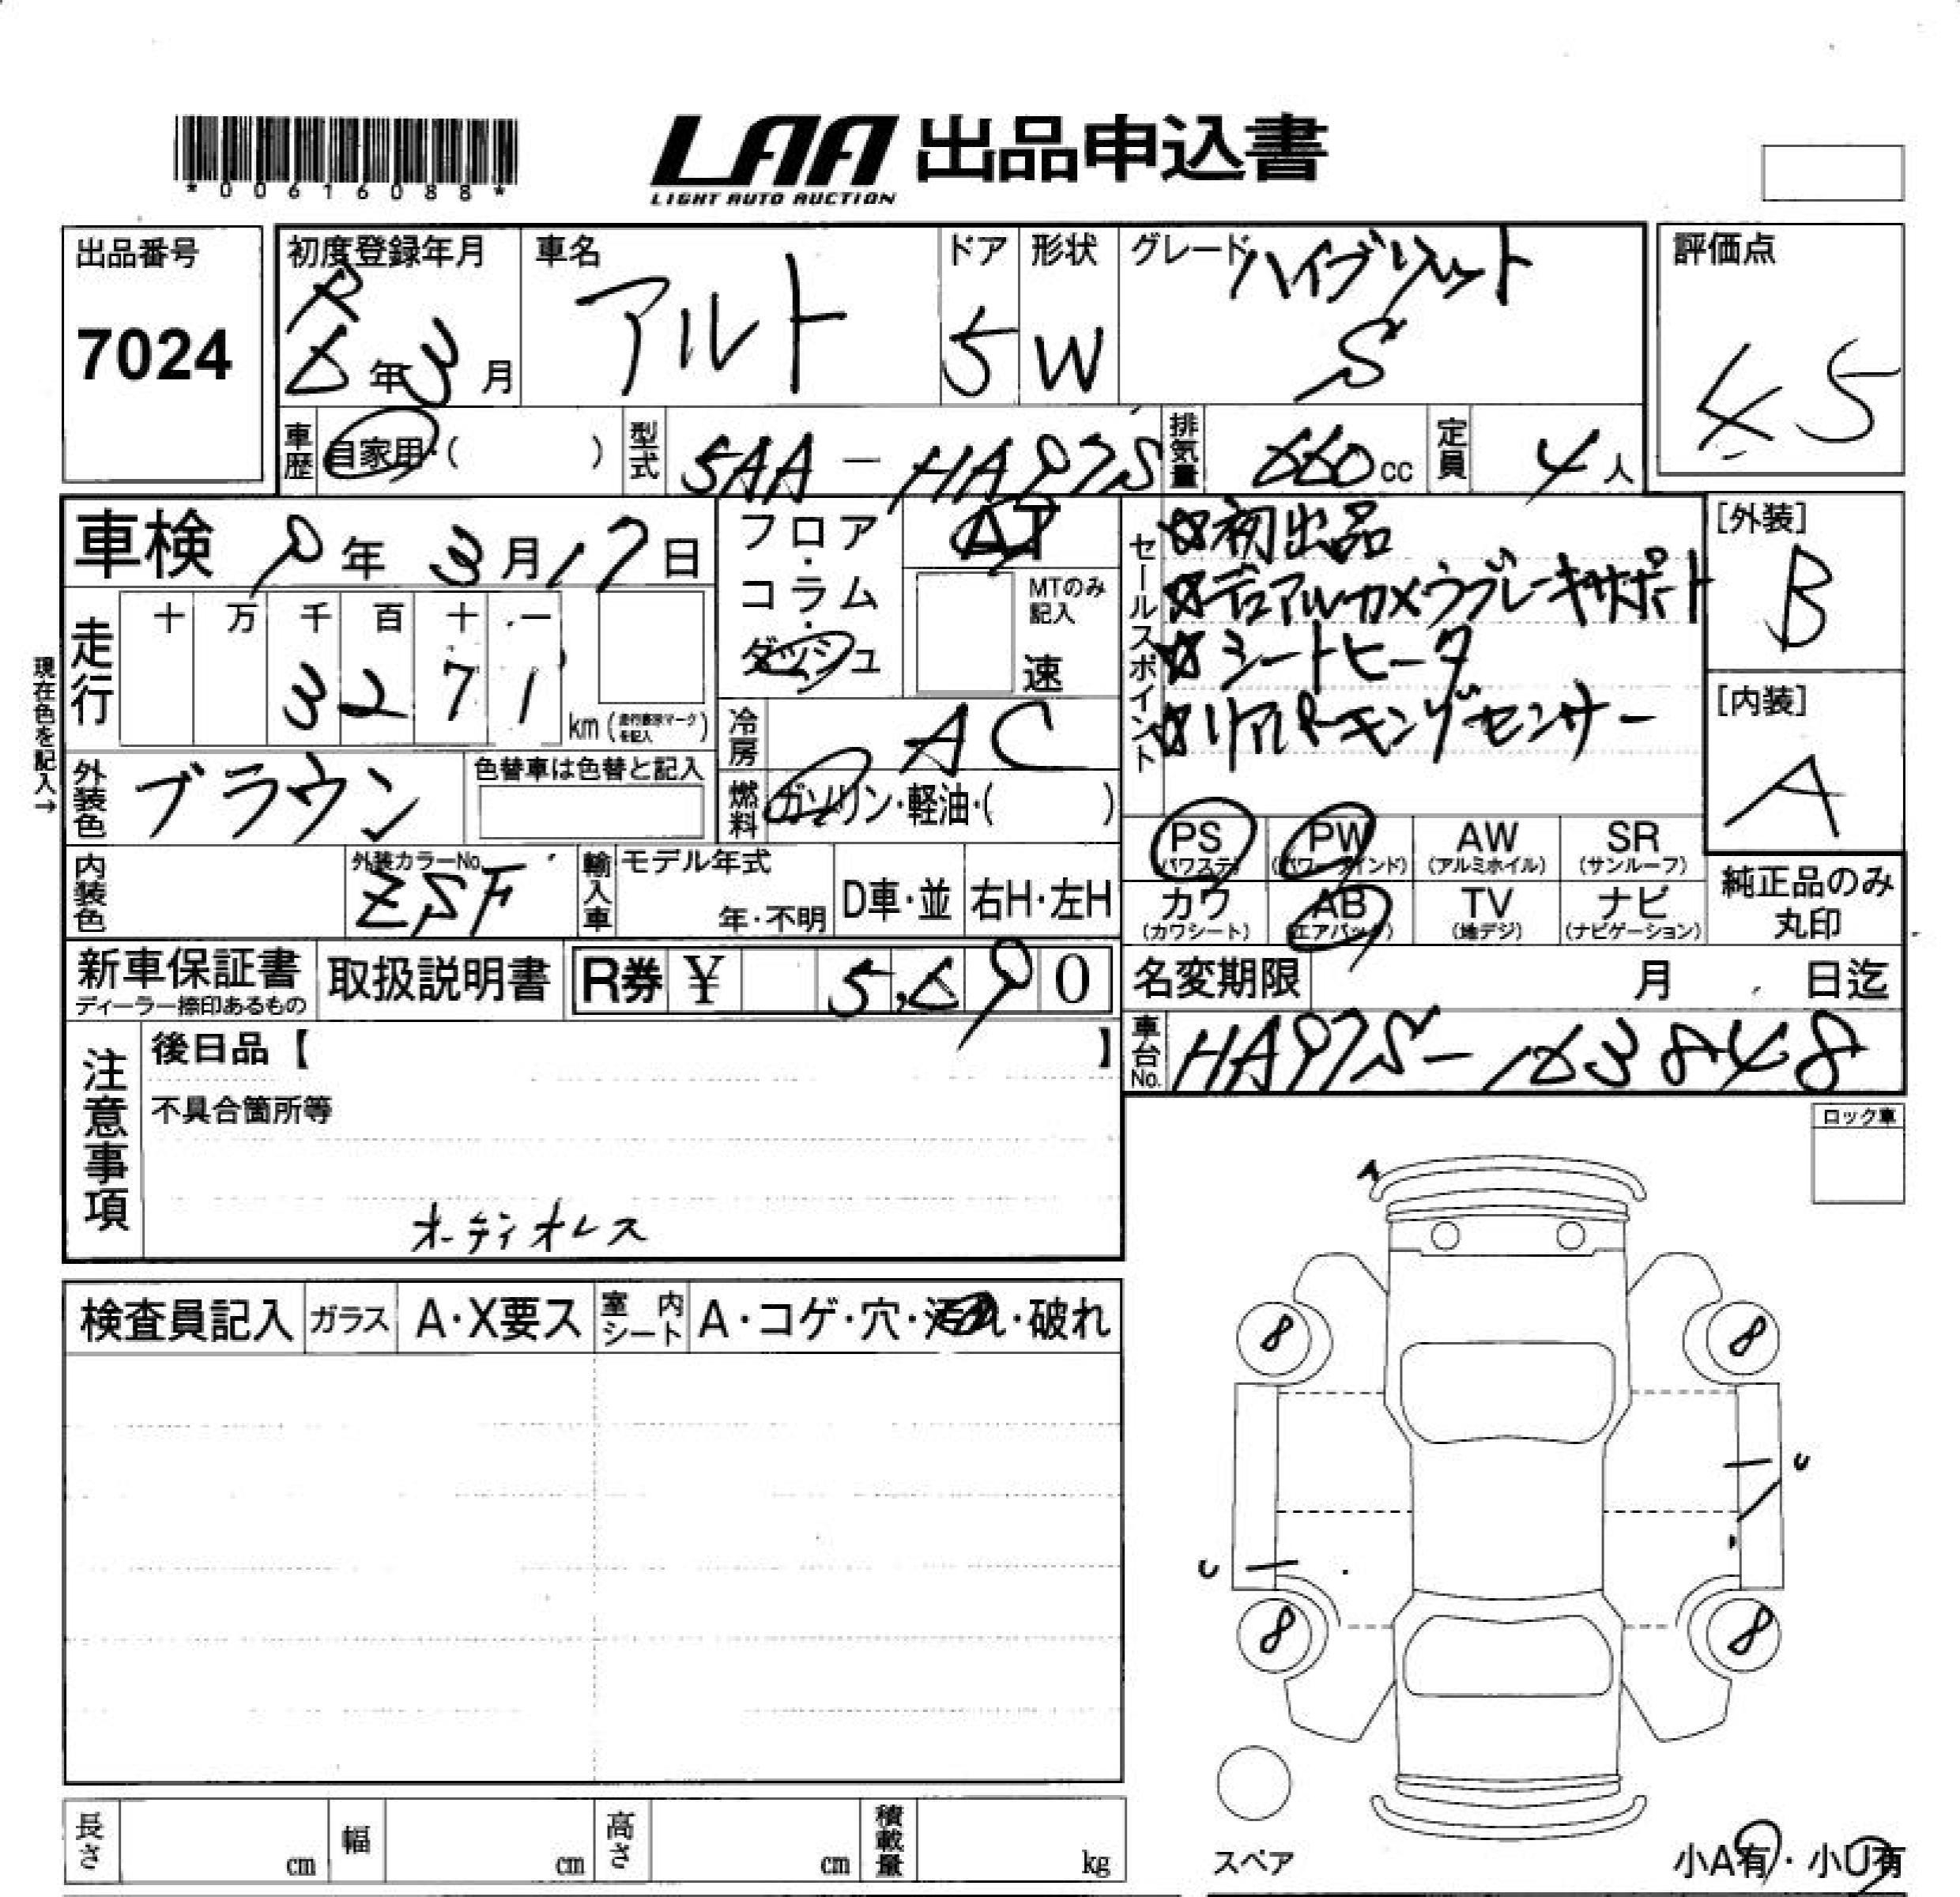 *00616088*
LAA 出品申込書
LIGHT AUTO AUCTION
出品番号
7024
初度登録年月
R
6年3月
車名
アルト
ドア
5
形状
W
グレード ハイブリット
S
評価点
4.5
車歴
自家用・( )
型式
5AA-HA97S
排気量
660cc
定員
4人
車検
9年3月17日
フロア・コラム・ダッシュ
AT
MTのみ記入
速
セールスポイント
☆初出品
☆デュアルカメラブレーキサポート
☆シートヒータ
☆リアパーキングセンサー
[外装]
B
[内装]
A
現在色を記入→
走行
十 万 千 百 十 一
3 2 7 1
km(走行表示マークを記入)
冷房
AC
外装色
ブラウン
色替車は色替と記入
燃料
ガソリン・軽油・( )
PS
(パワステ)
PW
(パワーウインド)
AW
(アルミホイル)
SR
(サンルーフ)
カワ
(カワシート)
AB
(エアバック)
TV
(地デジ)
ナビ
(ナビゲーション)
純正品のみ
丸印
内装色
外装カラーNo.
ZSF
輸入車
モデル年式
年・不明
D車・並
右H・左H
新車保証書
ディーラー捺印あるもの
取扱説明書
R券 ¥ 5,690
名変期限 月 日迄
車台No.
HA97S-163848
注意事項
後日品【 】
不具合箇所等
オーディオレス
ロック車
検査員記入
ガラス
A・X要ス
室内シート
A・コゲ・穴・汚れ・破れ
A
8
8
U
U
8
8
長さ cm
幅 cm
高さ cm
積載量 kg
スペア
小A有・小U有